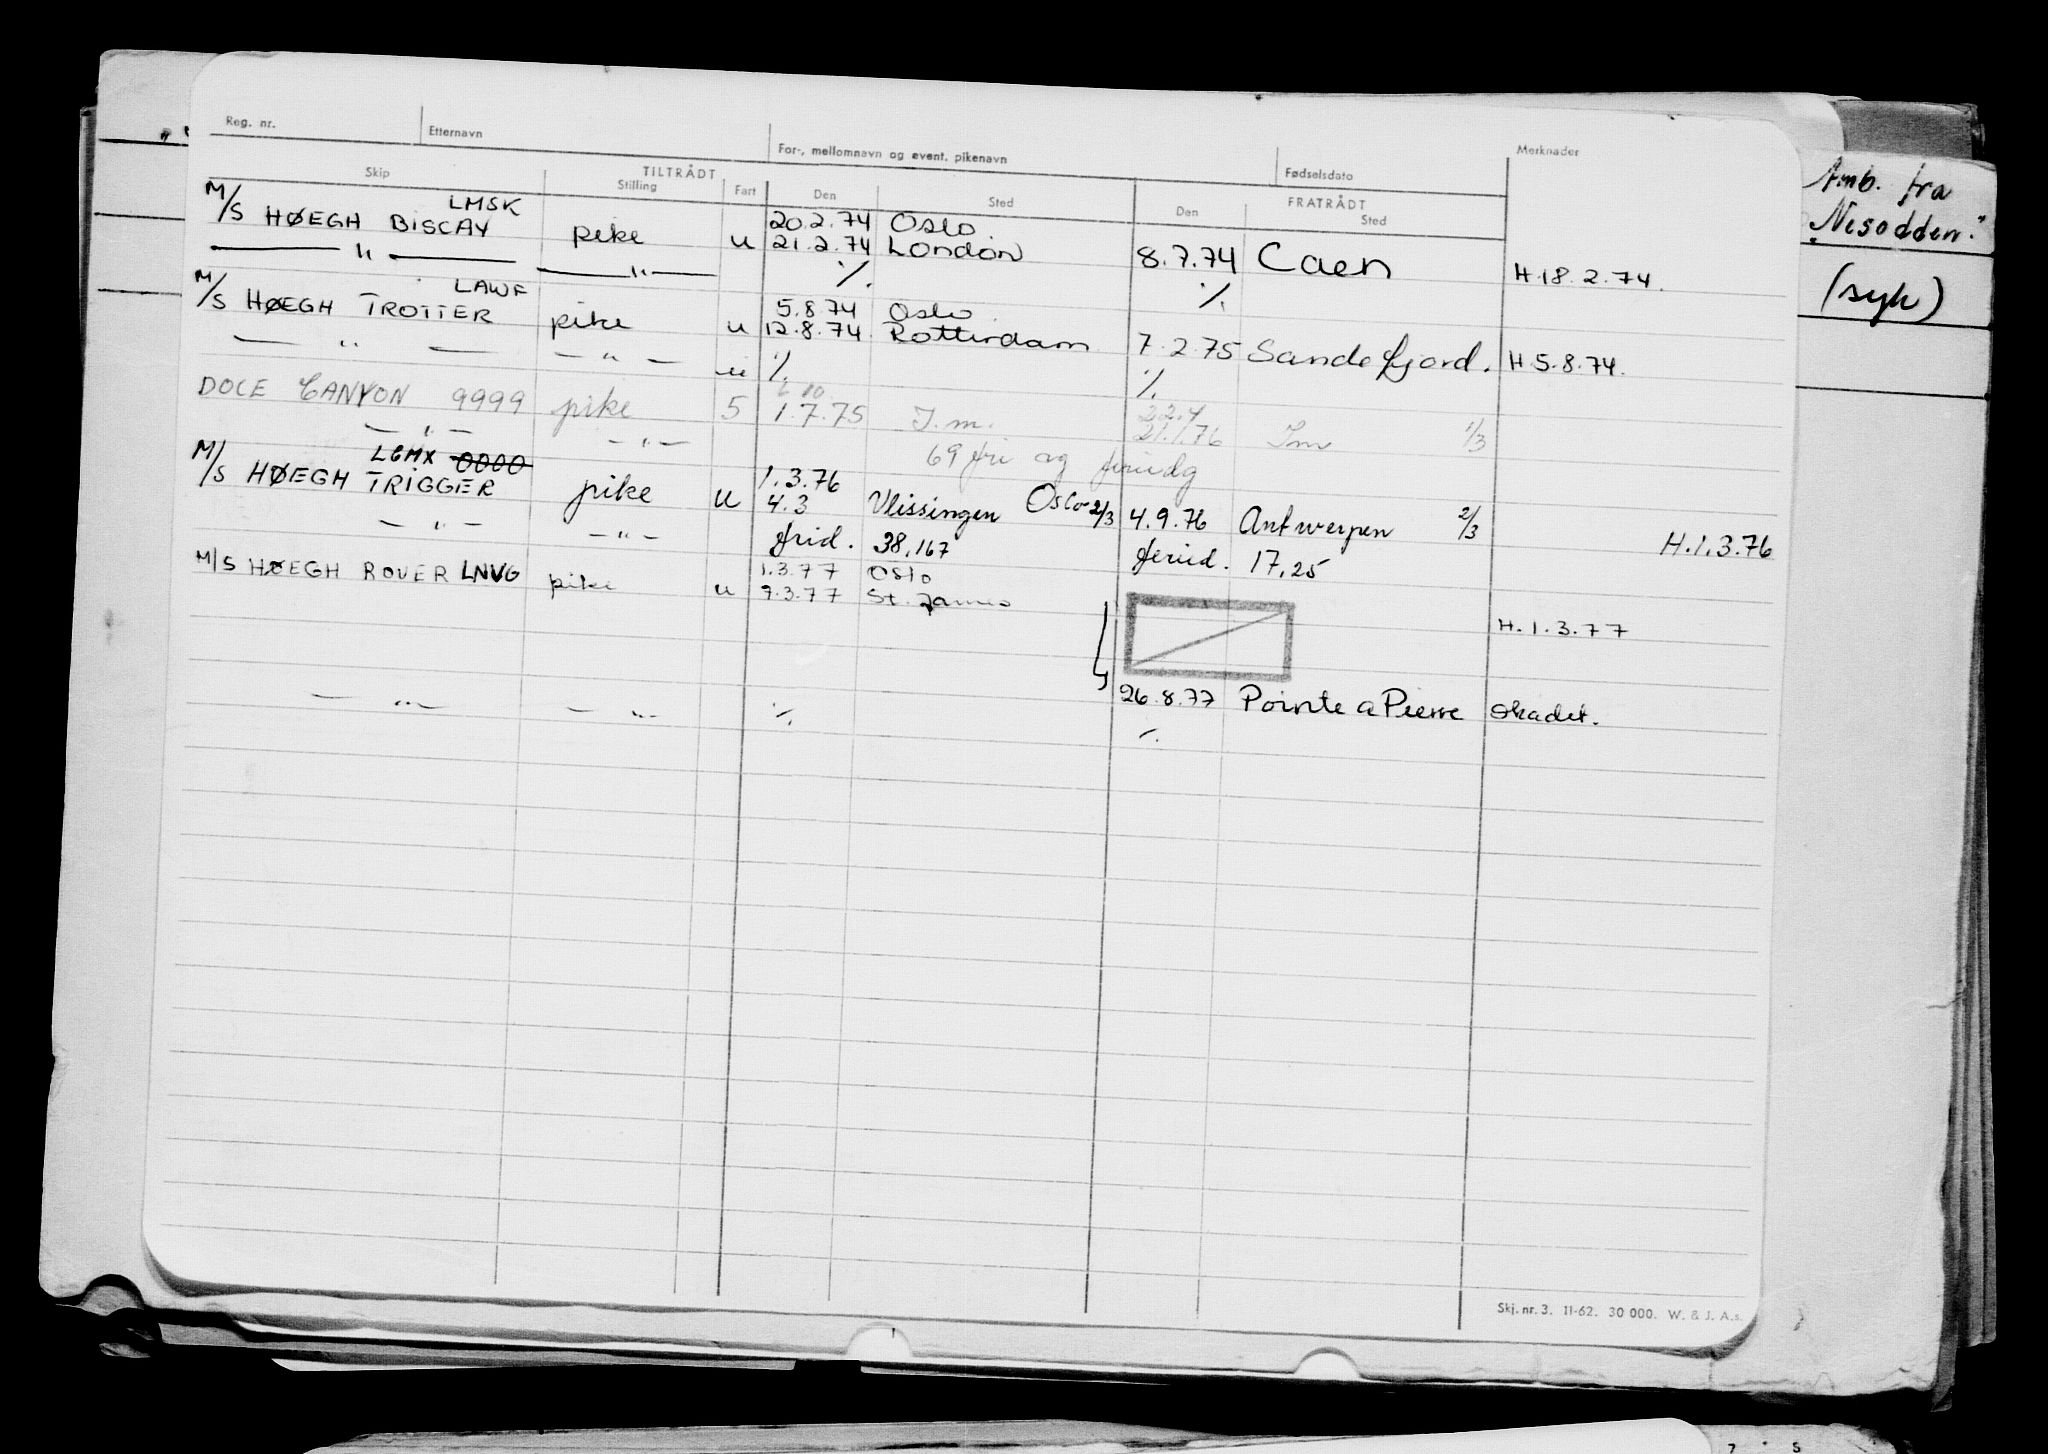 Reg. nr. Etternavn For-, mellomnavn og event. pikenavn Fødselsdato Merknader
Skip TILTRÅDT Stilling Fart Den Sted FRATRÅDT Den Sted
M/S HØEGH BISCAY LMSK pike u 20.2.74 Oslo
21.2.74 London 8.7.74 Caen H.18.2.74.
— " — — " — ·/. ·/.
M/S HØEGH TROTTER LAWF pike u 5.8.74 Oslo
12.8.74. Rotterdam 7.2.75 Sandefjord. H.5.8.74.
— " — — " — u ·/. ·/.
DOLE CANYON 9999 pike 5 1.7.75 I.m. 21.1.76 Im 1/3
— " — — " — 69 fri og feriedg
M/S HØEGH TRIGGER LGMX 0000 pike u 1.3.76
4.3 Vlissingen Oslo 2/3 4.9.76 Antwerpen 2/3 H.1.3.76
— " — — " — frid. 38,167 feried. 17,25
M/S HØEGH ROVER LNVG pike u 1.3.77 Oslo
9.3.77 St. James
H.1.3.77
26.8.77 Pointe a Pierre skadet.
— " — — " — ·/. ·/.
Skj. nr. 3. 11-62. 30 000. W. & J. A.s.
Amb. fra
"Nesodden."
(syk)
7 5